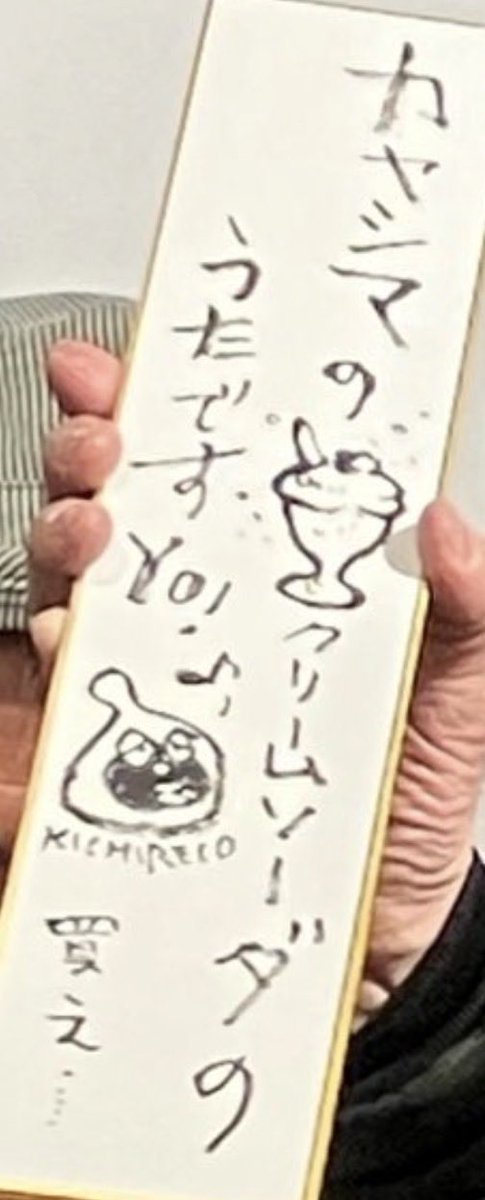 カヤシマの
クリームソーダの
うたです
YO!
KICHIRECO
買え…